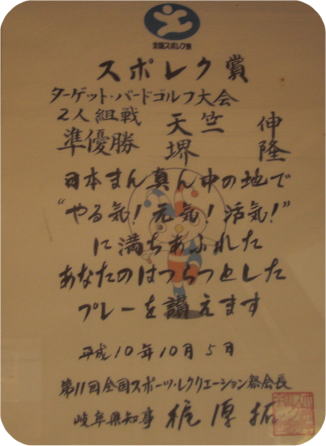 全国スポレク祭
スポレク賞
ターゲット・バードゴルフ大会
2人組戦 天竺 伸
準優勝 堺 隆
日本まん真ん中の地で
“やる気!元気!活気!”
に満ちあふれた
あなたのはつらつとした
プレーを讃えます
平成10年10月5日
第11回全国スポーツ・レクリエーション祭会長
岐阜県知事 梶原拓